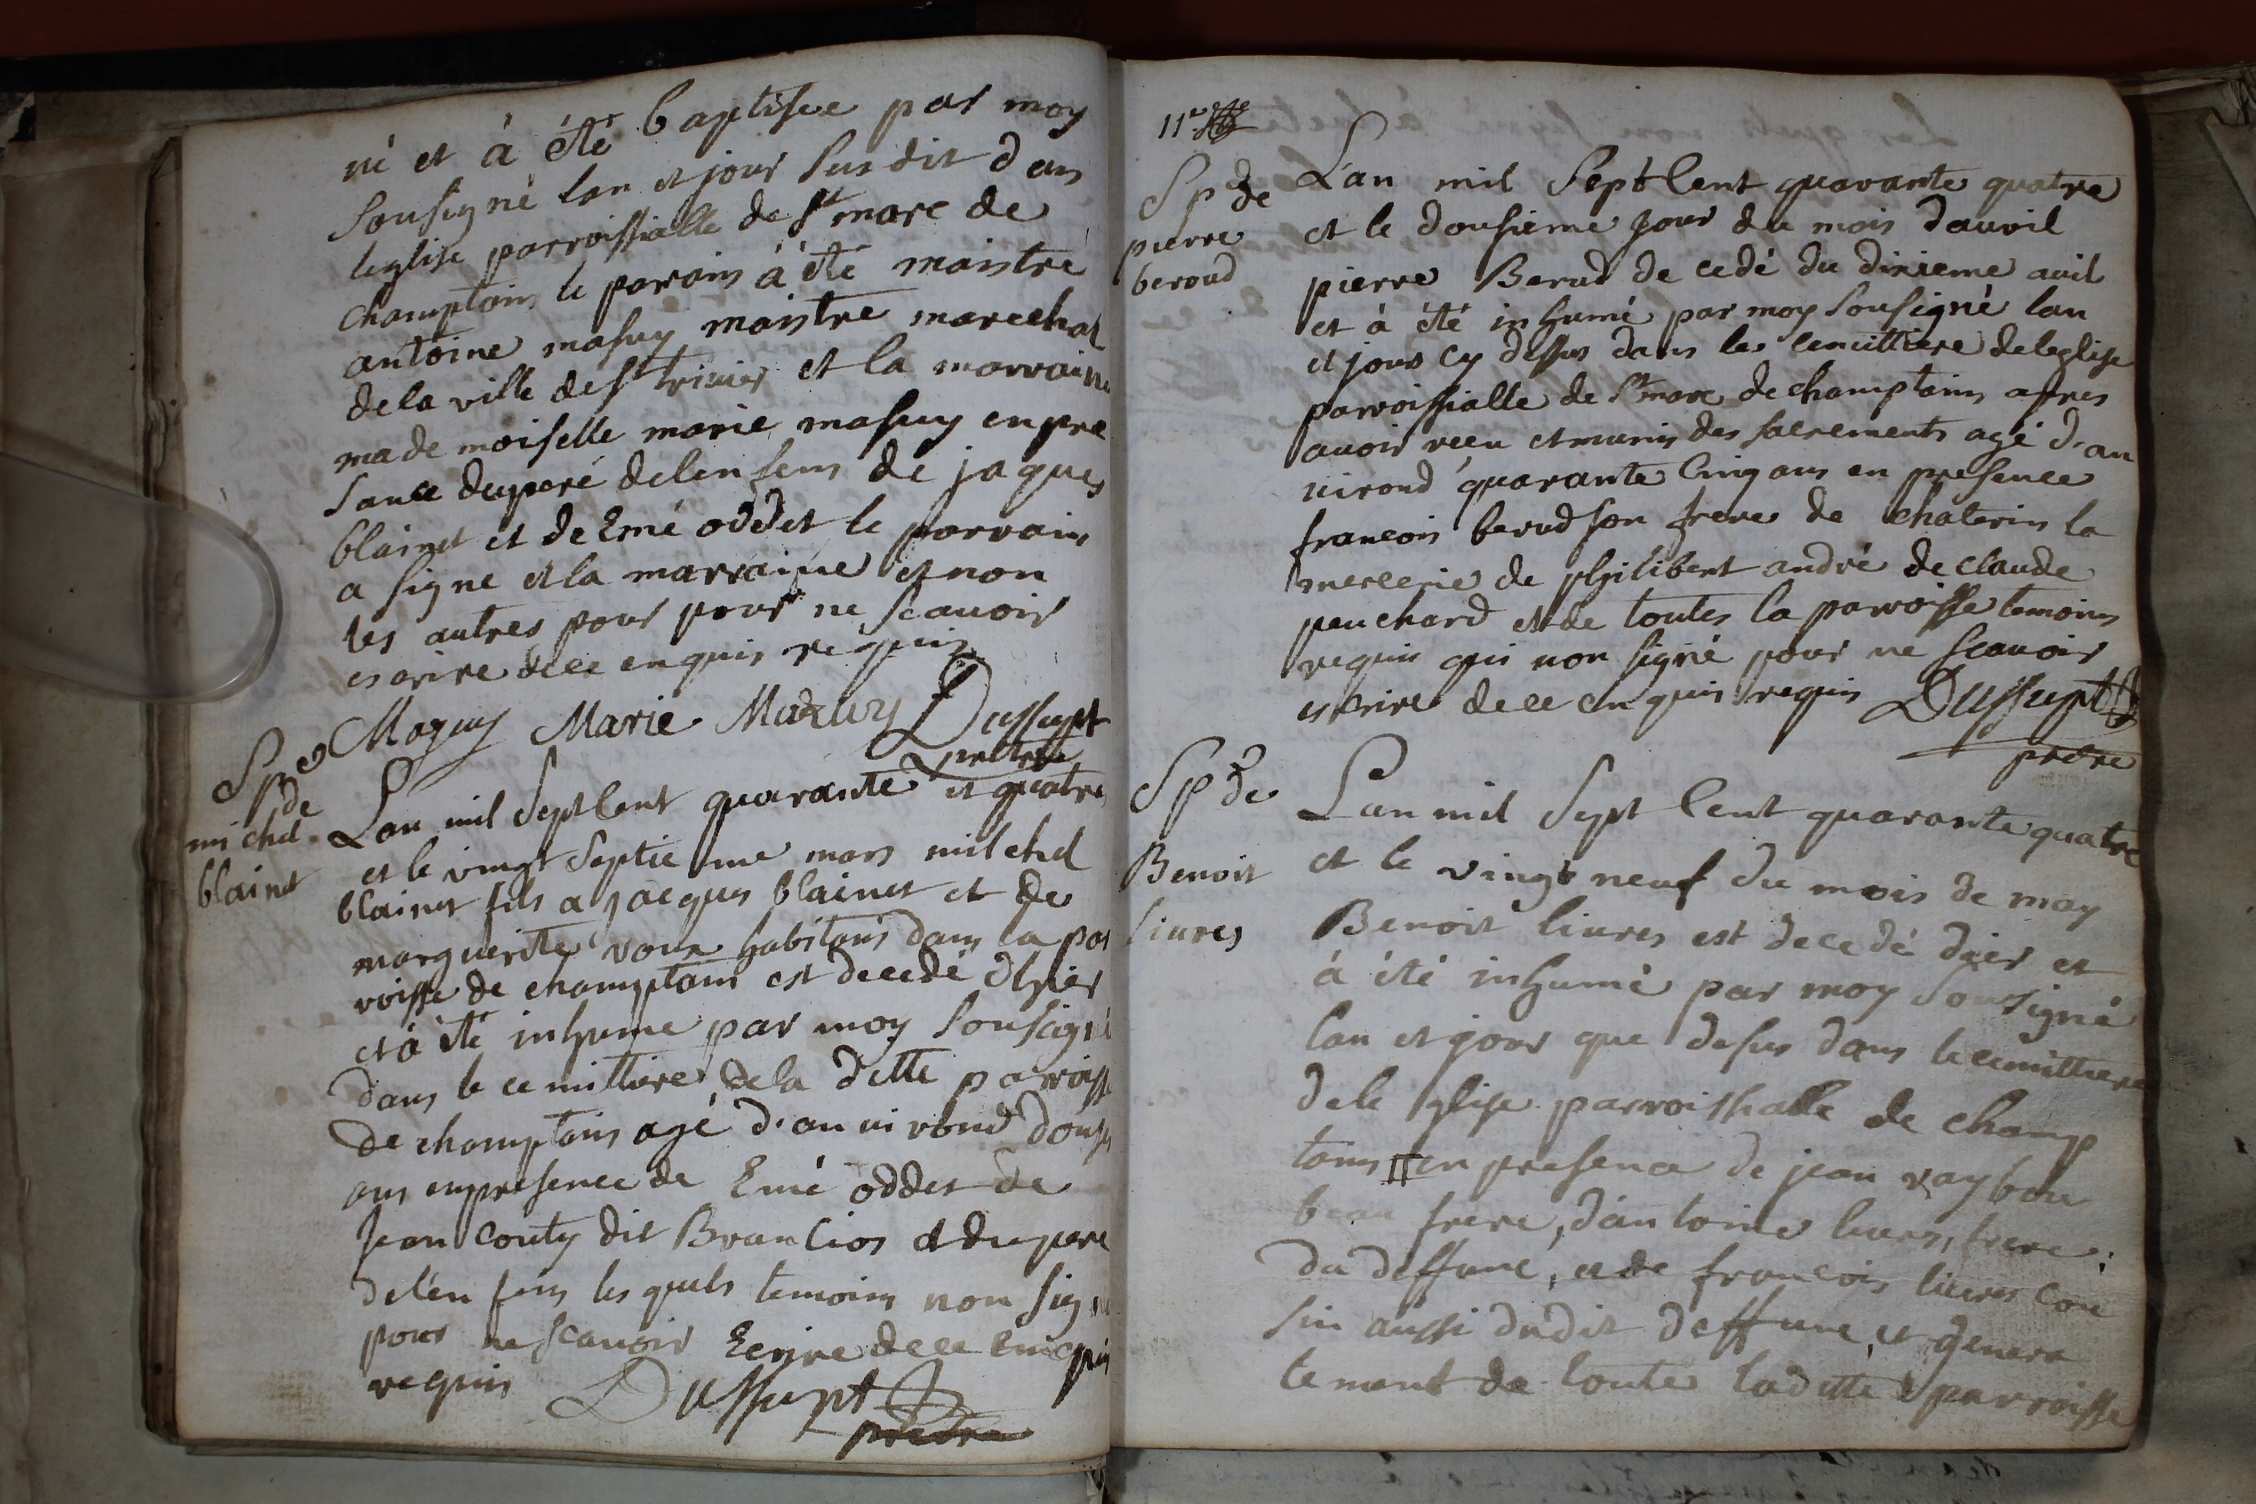 né et à été baptisee par moy
sousigné lan et jour susdit dans
leglise parroissialle de St marc de
champtoin le parain à été maistre
antoine masuy maistre marechal
dela ville de St trivier et la marraine
mademoiselle marie masuy enpre
sance dupere delenfens de jaques
blainet et de Emé oddet le parrain
a signe et la marraine et non
les autres pour pour ne scavoir
escrire dece enquis requis
Mazuy Marie Mazuy Dussupt
prêtre
Sp de
michel
blainet
Lan mil Septcent quarante et quatre
et le vingt septieme mars milchel
blainet fils a jacques blainet et de
marguerite voux habitans dans la par
roisse de champtoin est decedé d'hier
et à été inhume par moy sousigné
dans le cemittiere dela ditte parroisse
de champtoins agé d'anviron douse
ans enpresence de Emé oddet de
Jean couty dit Brancion et du pere
delenfens lesquels temoins non signé
pour ne scavoir Ecrire dece enquis
requis Dussupt
prêtre
11e
Sp de
pierre
beroud
L'an mil Sept Cent quarante quatre
et le dousieme jour du mois dauvril
pierre Berud decedé du dixieme avil
et à été inhumé par moy sousigné lan
et jour cy dessus dans le cemittiere deleglise
parroissialle de St marc de champtoins apres
avoir recu et munis des sacrements agé d'an
virond quarante Cinq ans en presence
francois berud son frere de chaterin la
mercerie de philibert andré de claude
peuchard et de toutes la parroisse temoins
requis qui non signé pour ne scavoir
escrire dece enquis requis Dussupt
prêtre
Sp de
Benoit
livres
L'an mil Sept Cent quarante quatre
et le vingt neuf du mois de may
Benoit livres est decedé dier et
à été inhumé par moy Sousigné
lan et jour que desus dans le cemittiere
dele glise parroissialle de champ
toins en presence de jean raybou
beau frere, d'antoine livres, frere
du deffunt, et de francois livres cou
sin aussi dudit deffunt, et genera
lement de toute laditte parroisse